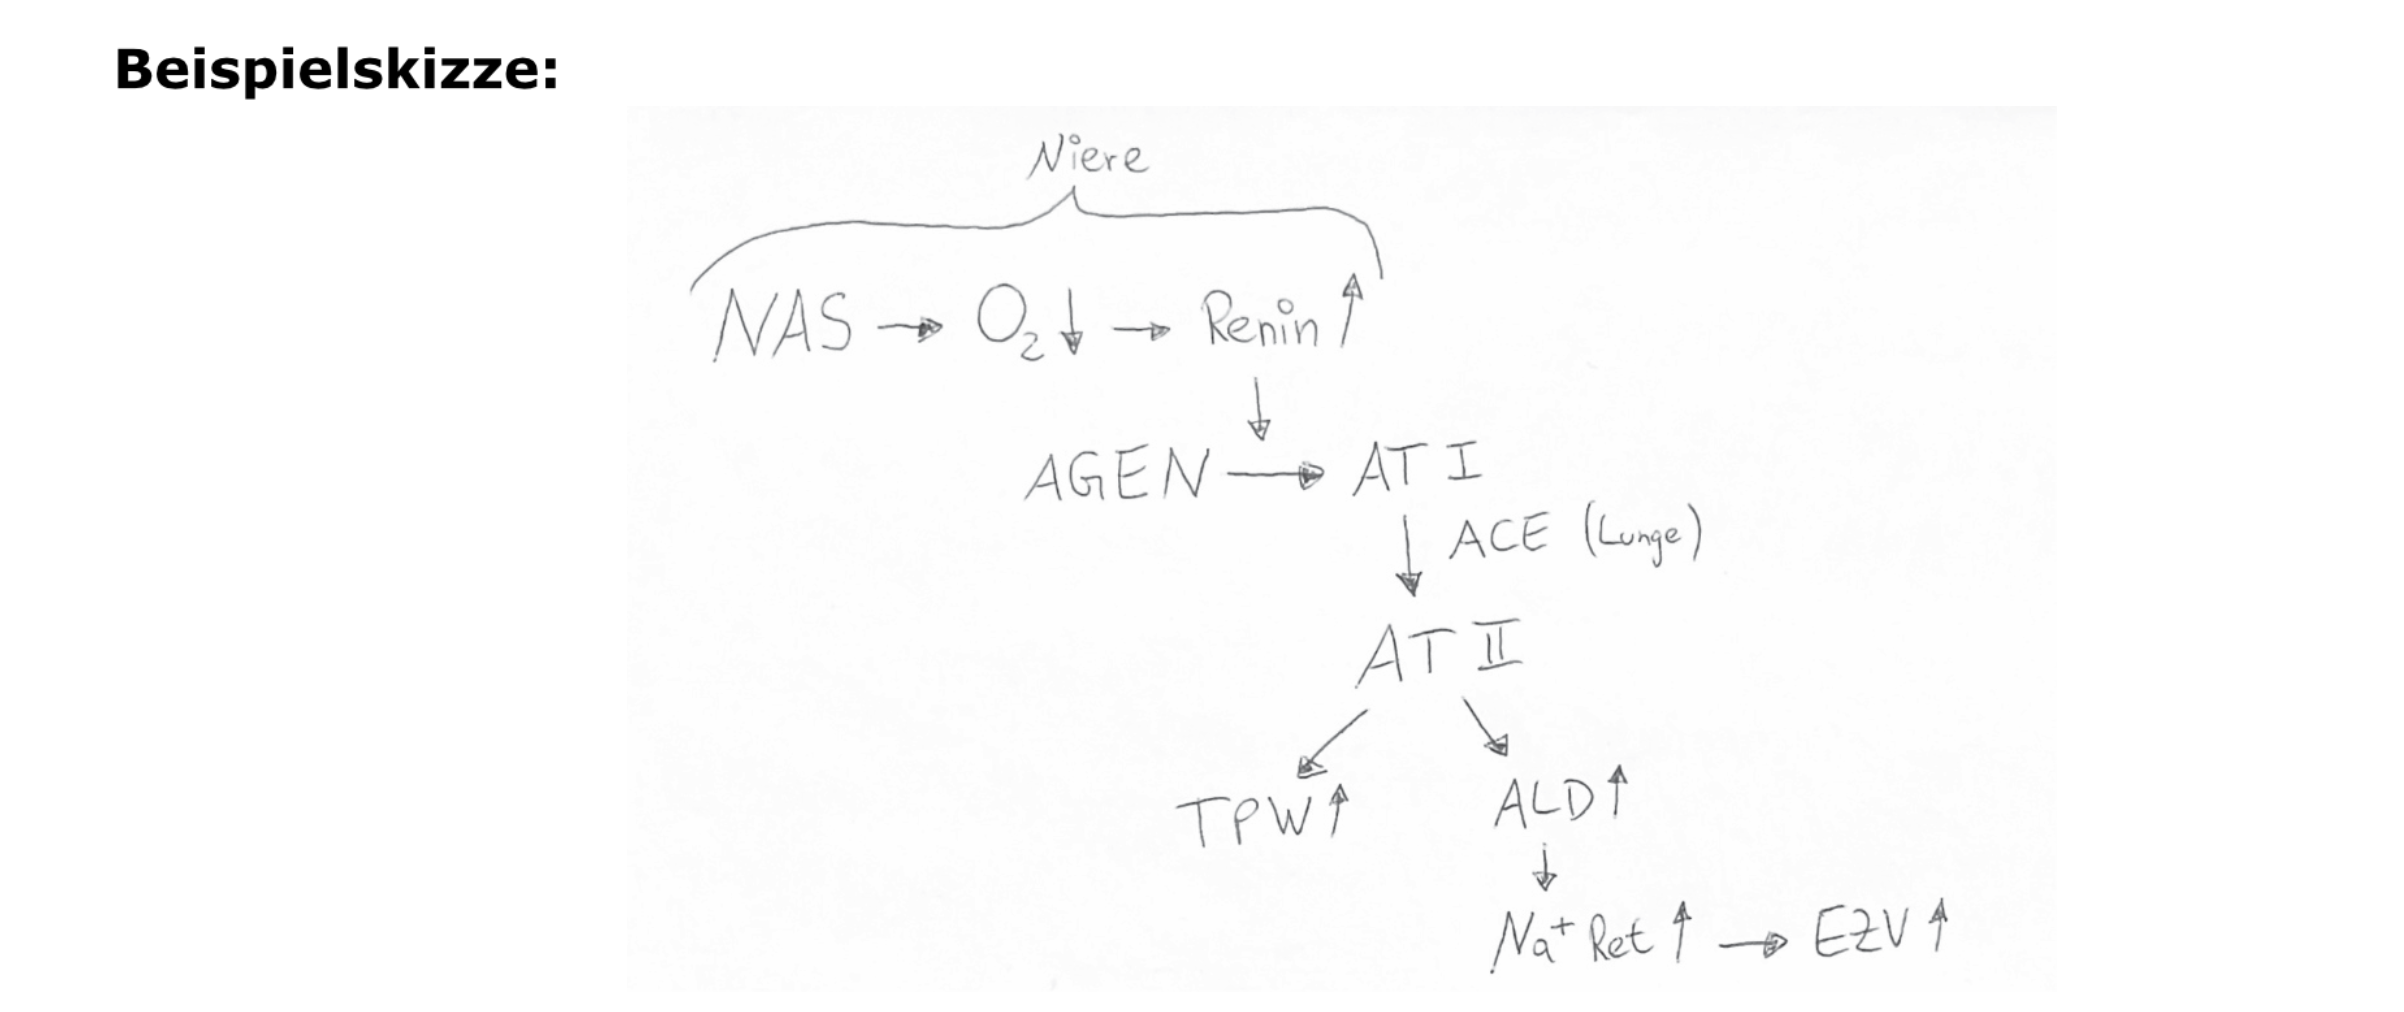 Beispielskizze:
Niere
NAS → O₂ ↓ → Renin ↑
↓
AGEN → AT I
↓ ACE (Lunge)
AT II
↙ ↘
TPW ↑ ALD ↑
↓
Na⁺ Ret ↑ → EZV ↑